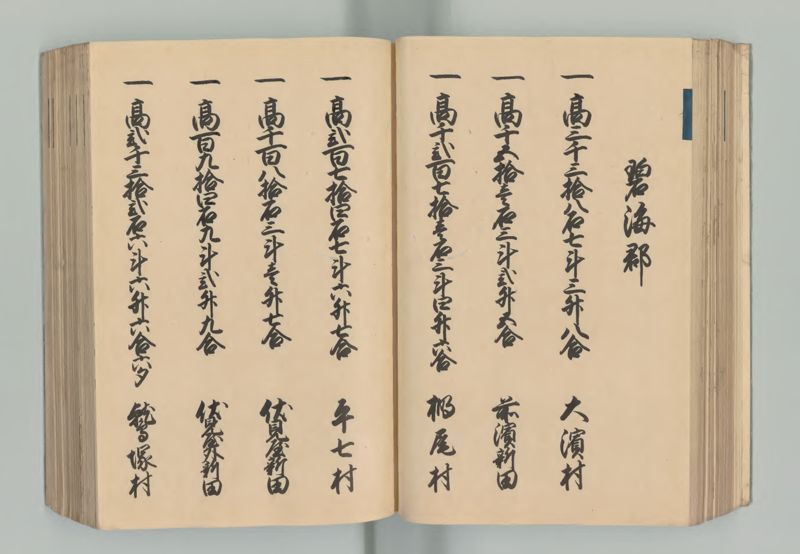 碧海郡
一 高三千三拾八石七斗三升八合 大濱村
一 高千五拾壱石三斗弐升五合 前濱新田
一 高千弐百七拾壱石三斗四升六合 棚尾村
一 高弐百七拾四石七斗六升七合 平七村
一 高千百八拾石三斗壱升七合 伏見屋新田
一 高百九拾四石九斗弐升九合 伏見屋外新田
一 高弐千三拾弐石六斗六升六合六夕 鷲塚村